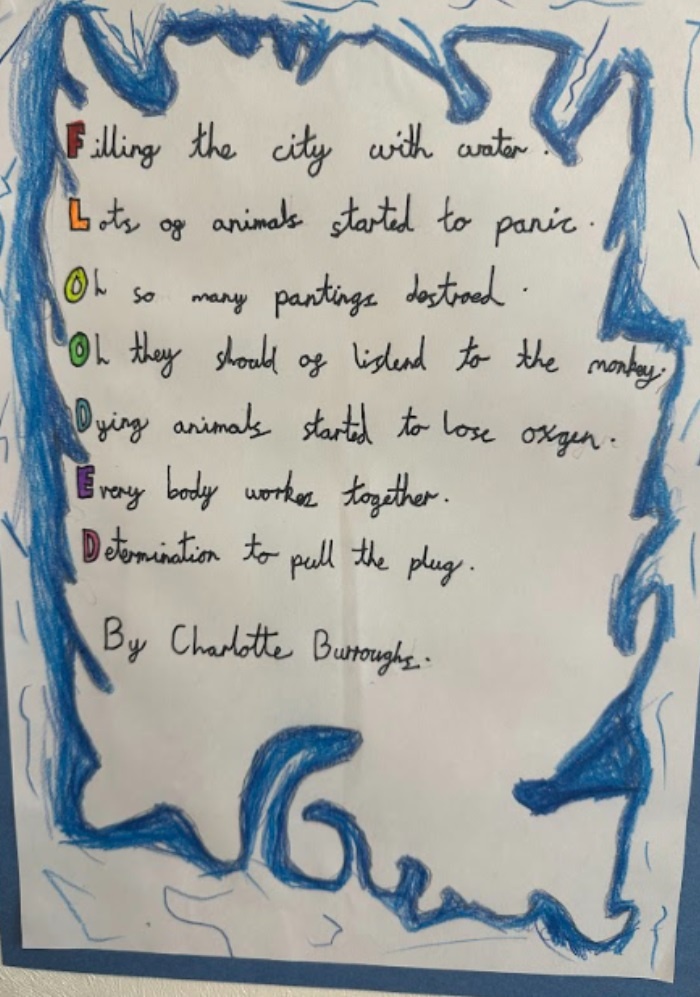 Filling the city with water.
Lots og animals started to panic.
Oh so many pantings destroed.
Oh they should og lisdend to the monkey.
Dying animals started to lose oxgen.
Every body workes together.
Determination to pull the plug.
By Charlotte Burroughs.